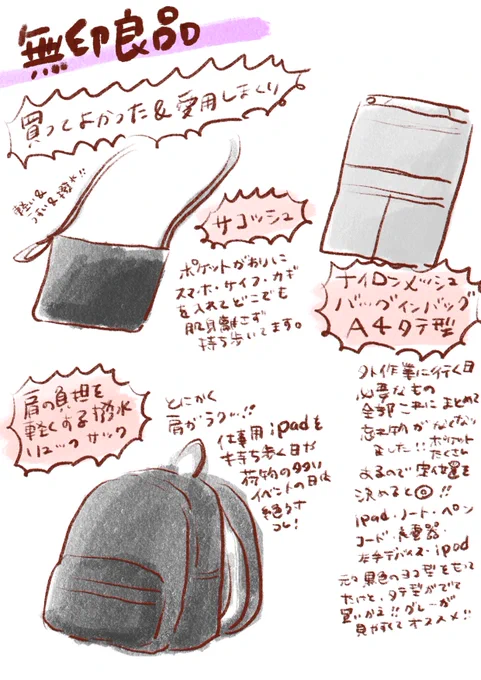 無印良品
買ってよかった&愛用しまくり
軽い&
うすい&撥水!!
サコッシュ
ポケットがわりに
スマホ・サイフ・カギ
を入れてどこでも
肌身離さず
持ち歩いてます。
ナイロンメッシュ
バッグインバッグ
A4タテ型
外作業に行く日
必要なもの
全部これにまとめて
忘れ物がなくなり
ました!!ポケット
たくさん
あるので定位置を
決めると◎!!
ipad・ノート・ペン
コード・充電器・
左手デバイス・ipod
元々黒色のヨコ型をもって
たけど、タテ型がでて
買いかえ!!グレーが
見やすくてオススメ!!
肩の負担を
軽くする撥水
リュックサック
とにかく
肩がラク…!!
仕事用ipadを
持ち歩く日や
荷物の多い
イベントの日は
絶対
コレ!